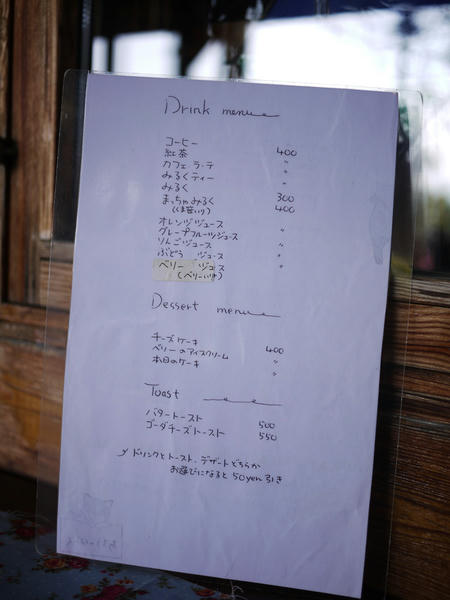 Drink menu
コーヒー 400
紅茶 〃
カフェ・ラ・テ 〃
みるくティー 〃
みるく 300
まっちゃみるく 400
オレンジジュース 〃
グレープフルーツジュース 〃
りんごジュース 〃
ぶどう ジュース 〃
ベリー ジュース
Dessert menu
チーズケーキ 400
ベリーのアイスクリーム 〃
本日のケーキ 〃
Toast
バタートースト 500
ゴーダチーズトースト 550
ドリンクとトースト、デザートどちらか
お選びになると 50yen 引き